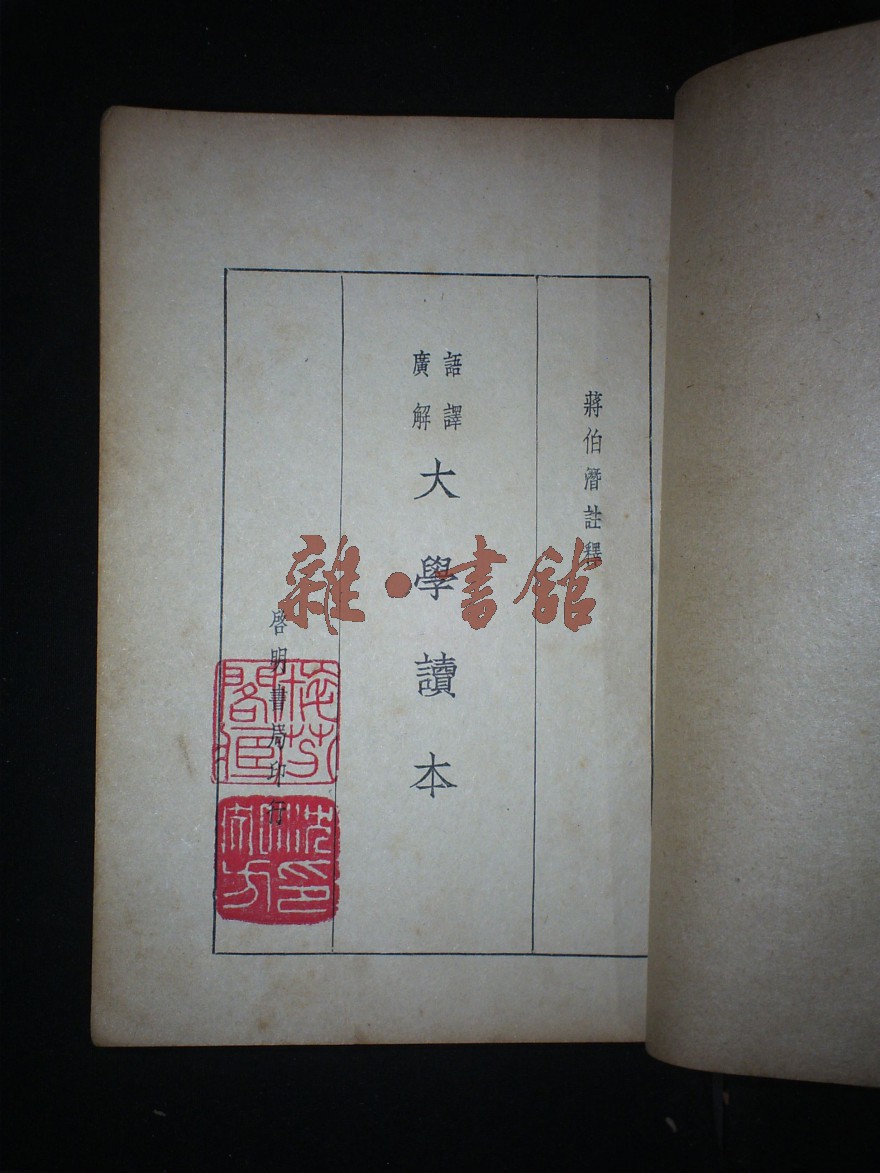 蔣伯潛註釋
語譯
廣解
大學讀本
啓明書局印行
雜·書館